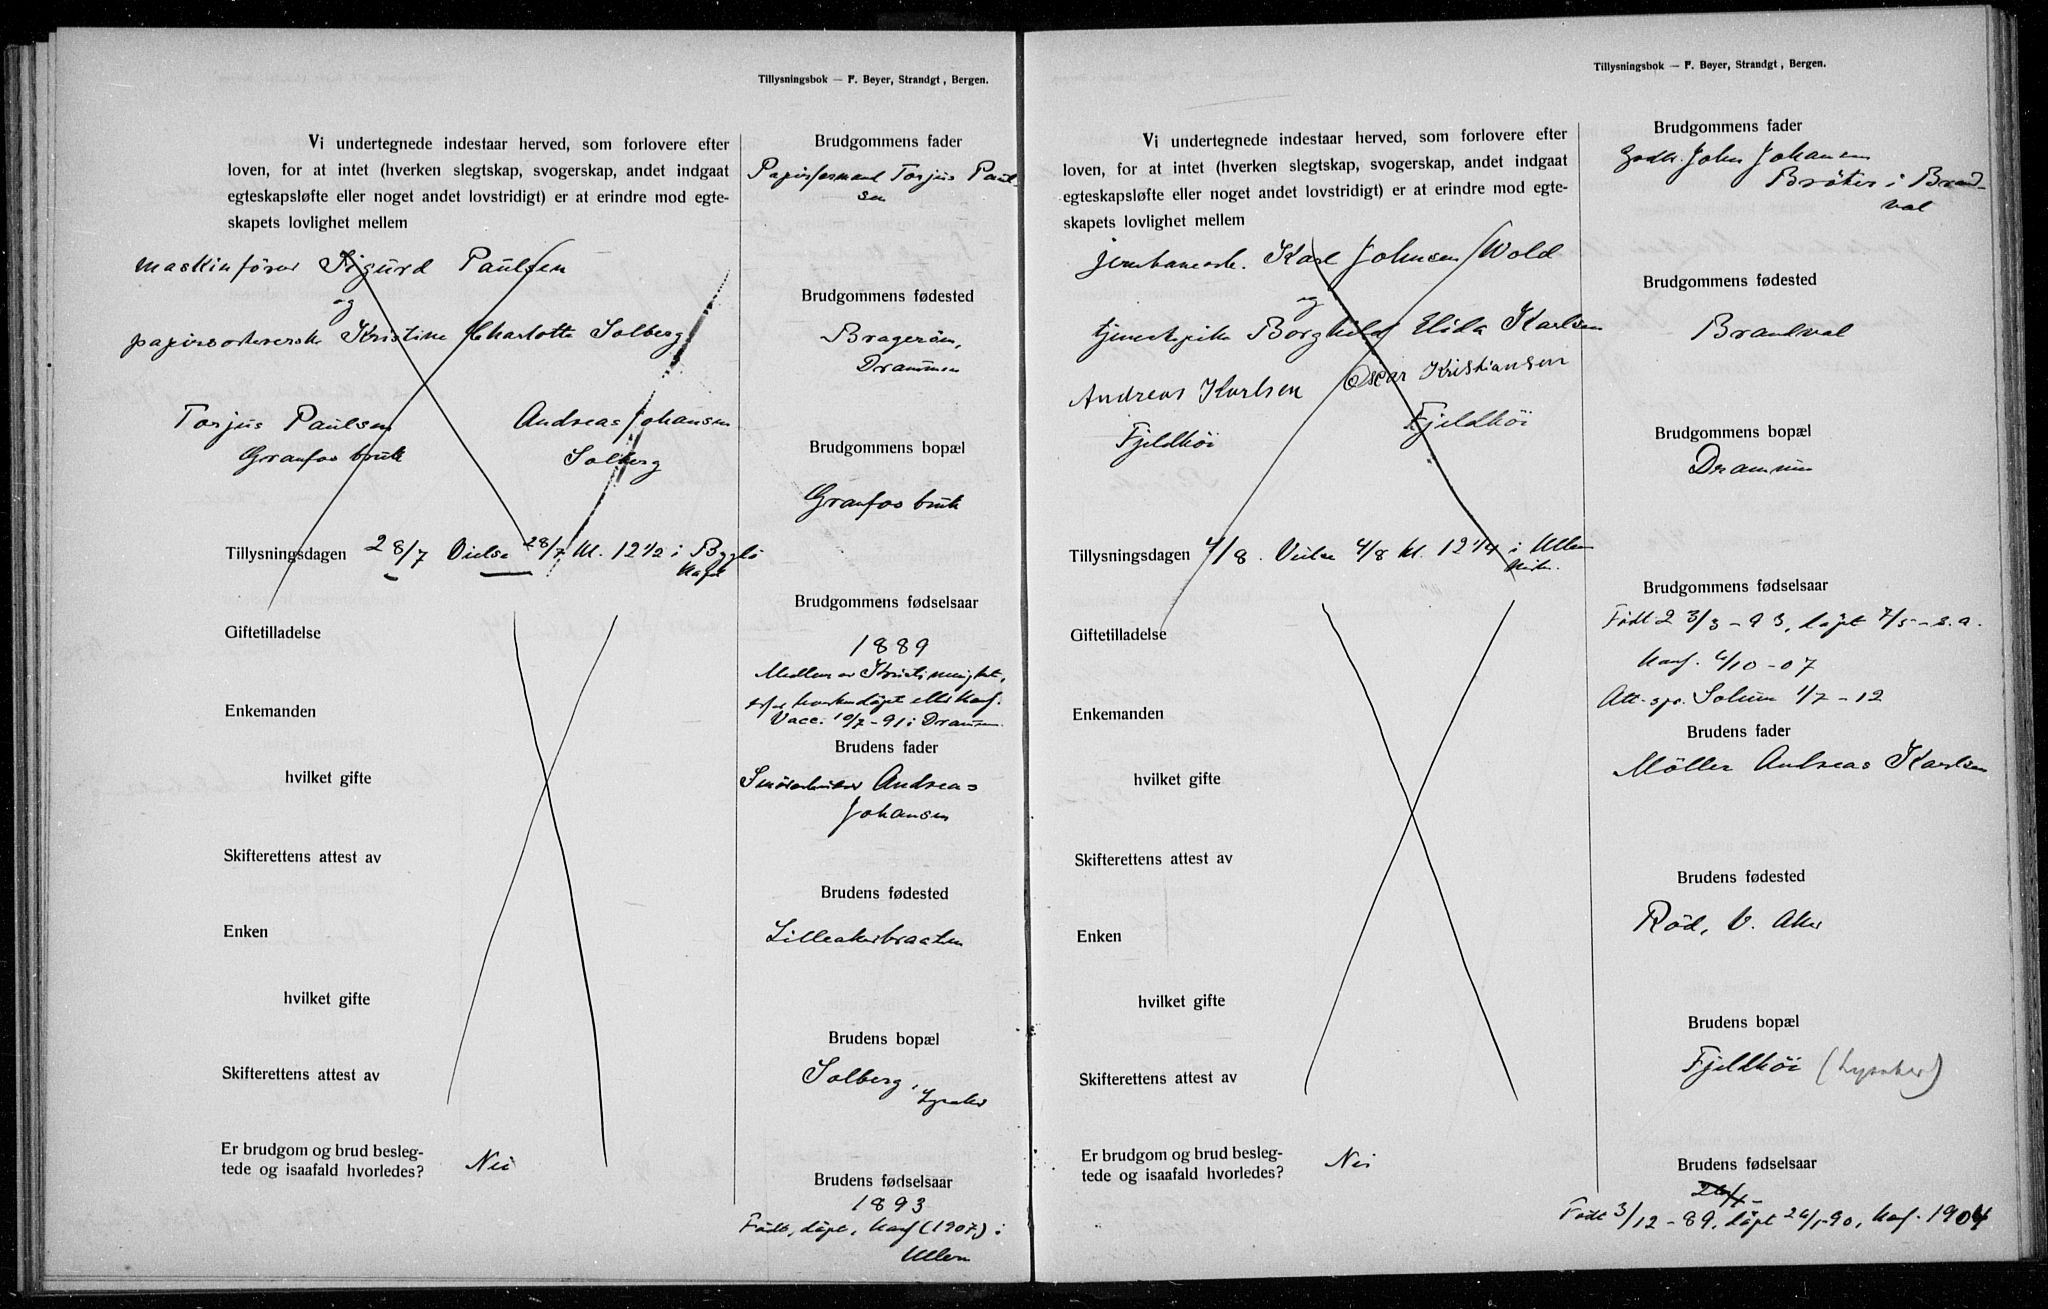 Tillysningsbok — F. Beyer, Strandgt, Bergen.
Vi undertegnede indestaar herved, som forlovere efter
loven, for at intet (hverken slegtskap, svogerskap, andet indgaat
egteskapsløfte eller noget andet lovstridigt) er at erindre mod egte-
skapets lovlighet mellem
maskinfører Sigurd Paulsen
og
papirsortererske Kristine Charlotte Solberg
Torjus Paulsen Andreas Johansen
Granfos bruk Solberg
Tillysningsdagen 28/7 Vielse 28/7 kl. 12 1/2 i Bygdø
Kapel
Giftetilladelse
Enkemanden
hvilket gifte
Skifterettens attest av
Enken
hvilket gifte
Skifterettens attest av
Er brudgom og brud besleg-
tede og isaafald hvorledes? Nei
Brudgommens fader
Papirformand Torjus Paul-
sen
Brudgommens fødested
Bragerøen,
Drammen
Brudgommens bopæl
Granfos bruk
Brudgommens fødselsaar
1889
Medlem av Kristi menighet,
hverken døpt eller konf.
Vacc. 10/7-91 i Drammen.
Brudens fader
Andreas
Johansen
Brudens fødested
Lilleakerbraaten
Brudens bopæl
Solberg,
Lysaker
Brudens fødselsaar
1893
Født, døpt, konf (1907) i
Ullern
Tillysningsbok — F. Beyer, Strandgt, Bergen.
Vi undertegnede indestaar herved, som forlovere efter
loven, for at intet (hverken slegtskap, svogerskap, andet indgaat
egteskapsløfte eller noget andet lovstridigt) er at erindre mod egte-
skapets lovlighet mellem
jernbanearb. Karl Johnsen Wold
og
tjenestepike Borghild Elida Karlsen
Andreas Karlsen Oscar Kristiansen
Fjeldhöi Fjeldhöi
Tillysningsdagen 4/8. Vielse 4/8 kl. 12 1/4 i Ullern
kirke.
Giftetilladelse
Enkemanden
hvilket gifte
Skifterettens attest av
Enken
hvilket gifte
Skifterettens attest av
Er brudgom og brud besleg-
tede og isaafald hvorledes? Nei
Brudgommens fader
Gaardbr. John Johansen
Bröter i Brand-
val
Brudgommens fødested
Brandval
Brudgommens bopæl
Drammen
Brudgommens fødselsaar
Født 23/3-93, døpt 7/5 s.a.
konf. 6/10-07
Att. spr. Solum 1/7-12
Brudens fader
Möller Andreas Karlsen
Brudens fødested
Röd, V. Aker
Brudens bopæl
Fjeldhöi (Lysaker)
Brudens fødselsaar
Født 3/12-89, døpt 26/1-90, konf. 1904